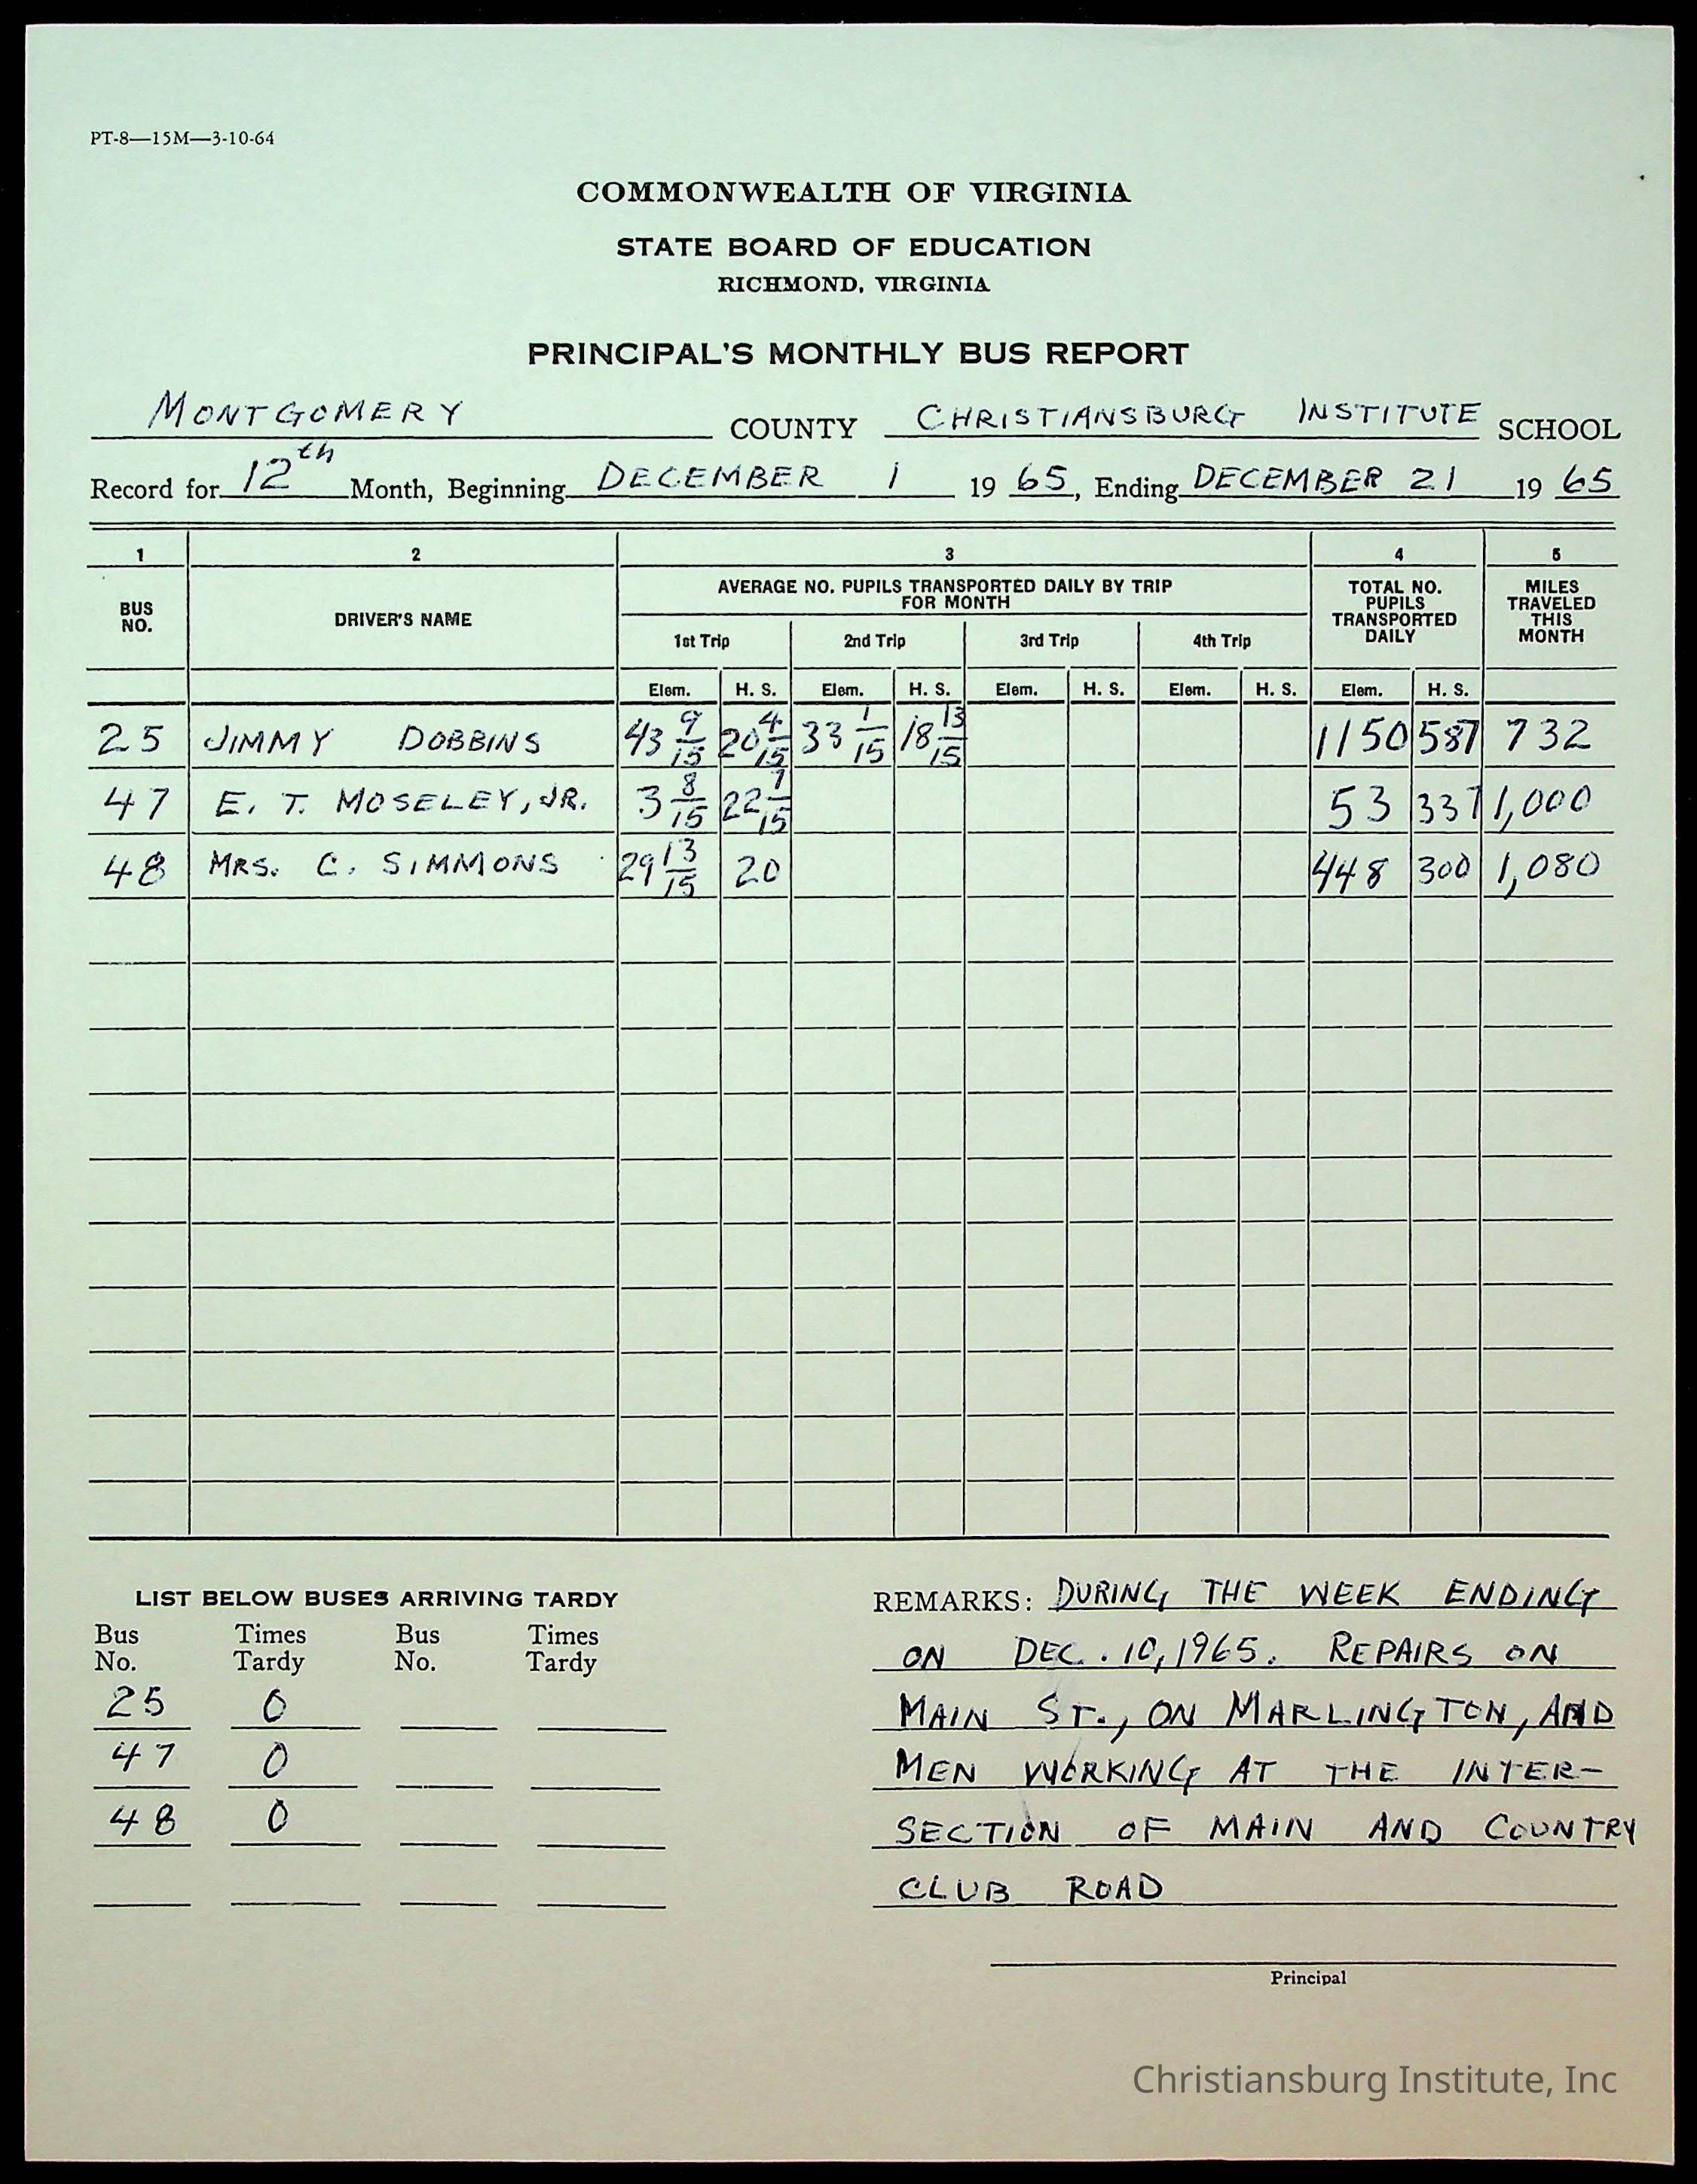 PT-8—15M—3-10-64
COMMONWEALTH OF VIRGINIA
STATE BOARD OF EDUCATION
RICHMOND, VIRGINIA
PRINCIPAL'S MONTHLY BUS REPORT
MONTGOMERY COUNTY CHRISTIANSBURG INSTITUTE SCHOOL
Record for 12th Month, Beginning DECEMBER 1 19 65, Ending DECEMBER 21 19 65
1 2 3 4 5
BUS NO. DRIVER'S NAME AVERAGE NO. PUPILS TRANSPORTED DAILY BY TRIP FOR MONTH TOTAL NO. PUPILS TRANSPORTED DAILY MILES TRAVELED THIS MONTH
1st Trip 2nd Trip 3rd Trip 4th Trip
Elem. H. S. Elem. H. S. Elem. H. S. Elem. H. S. Elem. H. S.
25 JIMMY DOBBINS 43 9/15 20 4/15 33 1/15 18 13/15 1150 587 732
47 E. T. MOSELEY, JR. 3 8/15 22 7/15 53 337 1,000
48 MRS. C. SIMMONS 29 13/15 20 448 300 1,080
LIST BELOW BUSES ARRIVING TARDY
Bus No. Times Tardy Bus No. Times Tardy
25 0
47 0
48 0
REMARKS: DURING THE WEEK ENDING
ON DEC. 10, 1965. REPAIRS ON
MAIN ST., ON MARLINGTON, AND
MEN WORKING AT THE INTER-
SECTION OF MAIN AND COUNTRY
CLUB ROAD
Principal
Christiansburg Institute, Inc